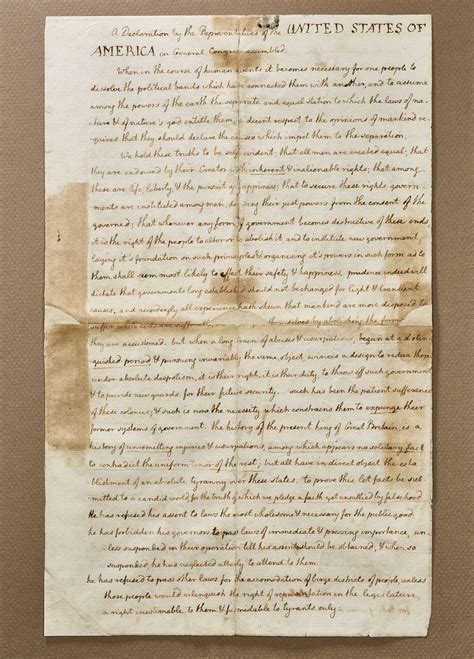 A Declaration by the Representatives of the UNITED STATES OF
AMERICA in General Congress assembled.
When in the course of human events it becomes necessary for one people to
dissolve the political bands which have connected them with another, and to assume
among the powers of the earth the separate and equal station to which the laws of na-
ture & of nature's god entitle them, a decent respect to the opinions of mankind re-
quires that they should declare the causes which impel them to the separation.
We hold these truths to be self-evident; that all men are created equal; that
they are endowed by their Creator with inherent & inalienable rights; that among
these are life, liberty, & the pursuit of happiness; that to secure these rights, govern-
ments are instituted among men, deriving their just powers from the consent of the
governed; that whenever any form of government becomes destructive of these ends,
it is the right of the people to alter or to abolish it, and to institute new government,
laying it's foundation on such principles & organising it's powers in such form as to
them shall seem most likely to effect their safety & happiness. prudence indeed will
dictate that governments long established should not be changed for light & transient
causes. and accordingly all experience hath shewn that mankind are more disposed to
suffer while evils are sufferable themselves by abolishing the forms
they are accustomed. but when a long train of abuses & usurpations, begun at a distin-
guished period & pursuing invariably the same object, evinces a design to reduce them
under absolute despotism, it is their right, it is their duty, to throw off such government
& to provide new guards for their future security. such has been the patient sufferance
of these colonies; & such is now the necessity which constrains them to expunge their
former systems of government. the history of the present king of Great Britain, is a
history of unremitting injuries & usurpations, among which appears no solitary fact
to contradict the uniform tenor of the rest; but all have in direct object the esta-
blishment of an absolute tyranny over these states. to prove this let facts be sub-
mitted to a candid world for the truth of which we pledge a faith yet unsullied by falsehood
He has refused his assent to laws the most wholesome & necessary for the public good.
he has forbidden his governors to pass laws of immediate & pressing importance, un-
less suspended in their operation till his assent should be obtained; & when so
suspended he has neglected utterly to attend to them.
he has refused to pass other laws for the accomodation of large districts of people, unless
those people would relinquish the right of representation in the legislature,
a right inestimable to them & formidable to tyrants only: